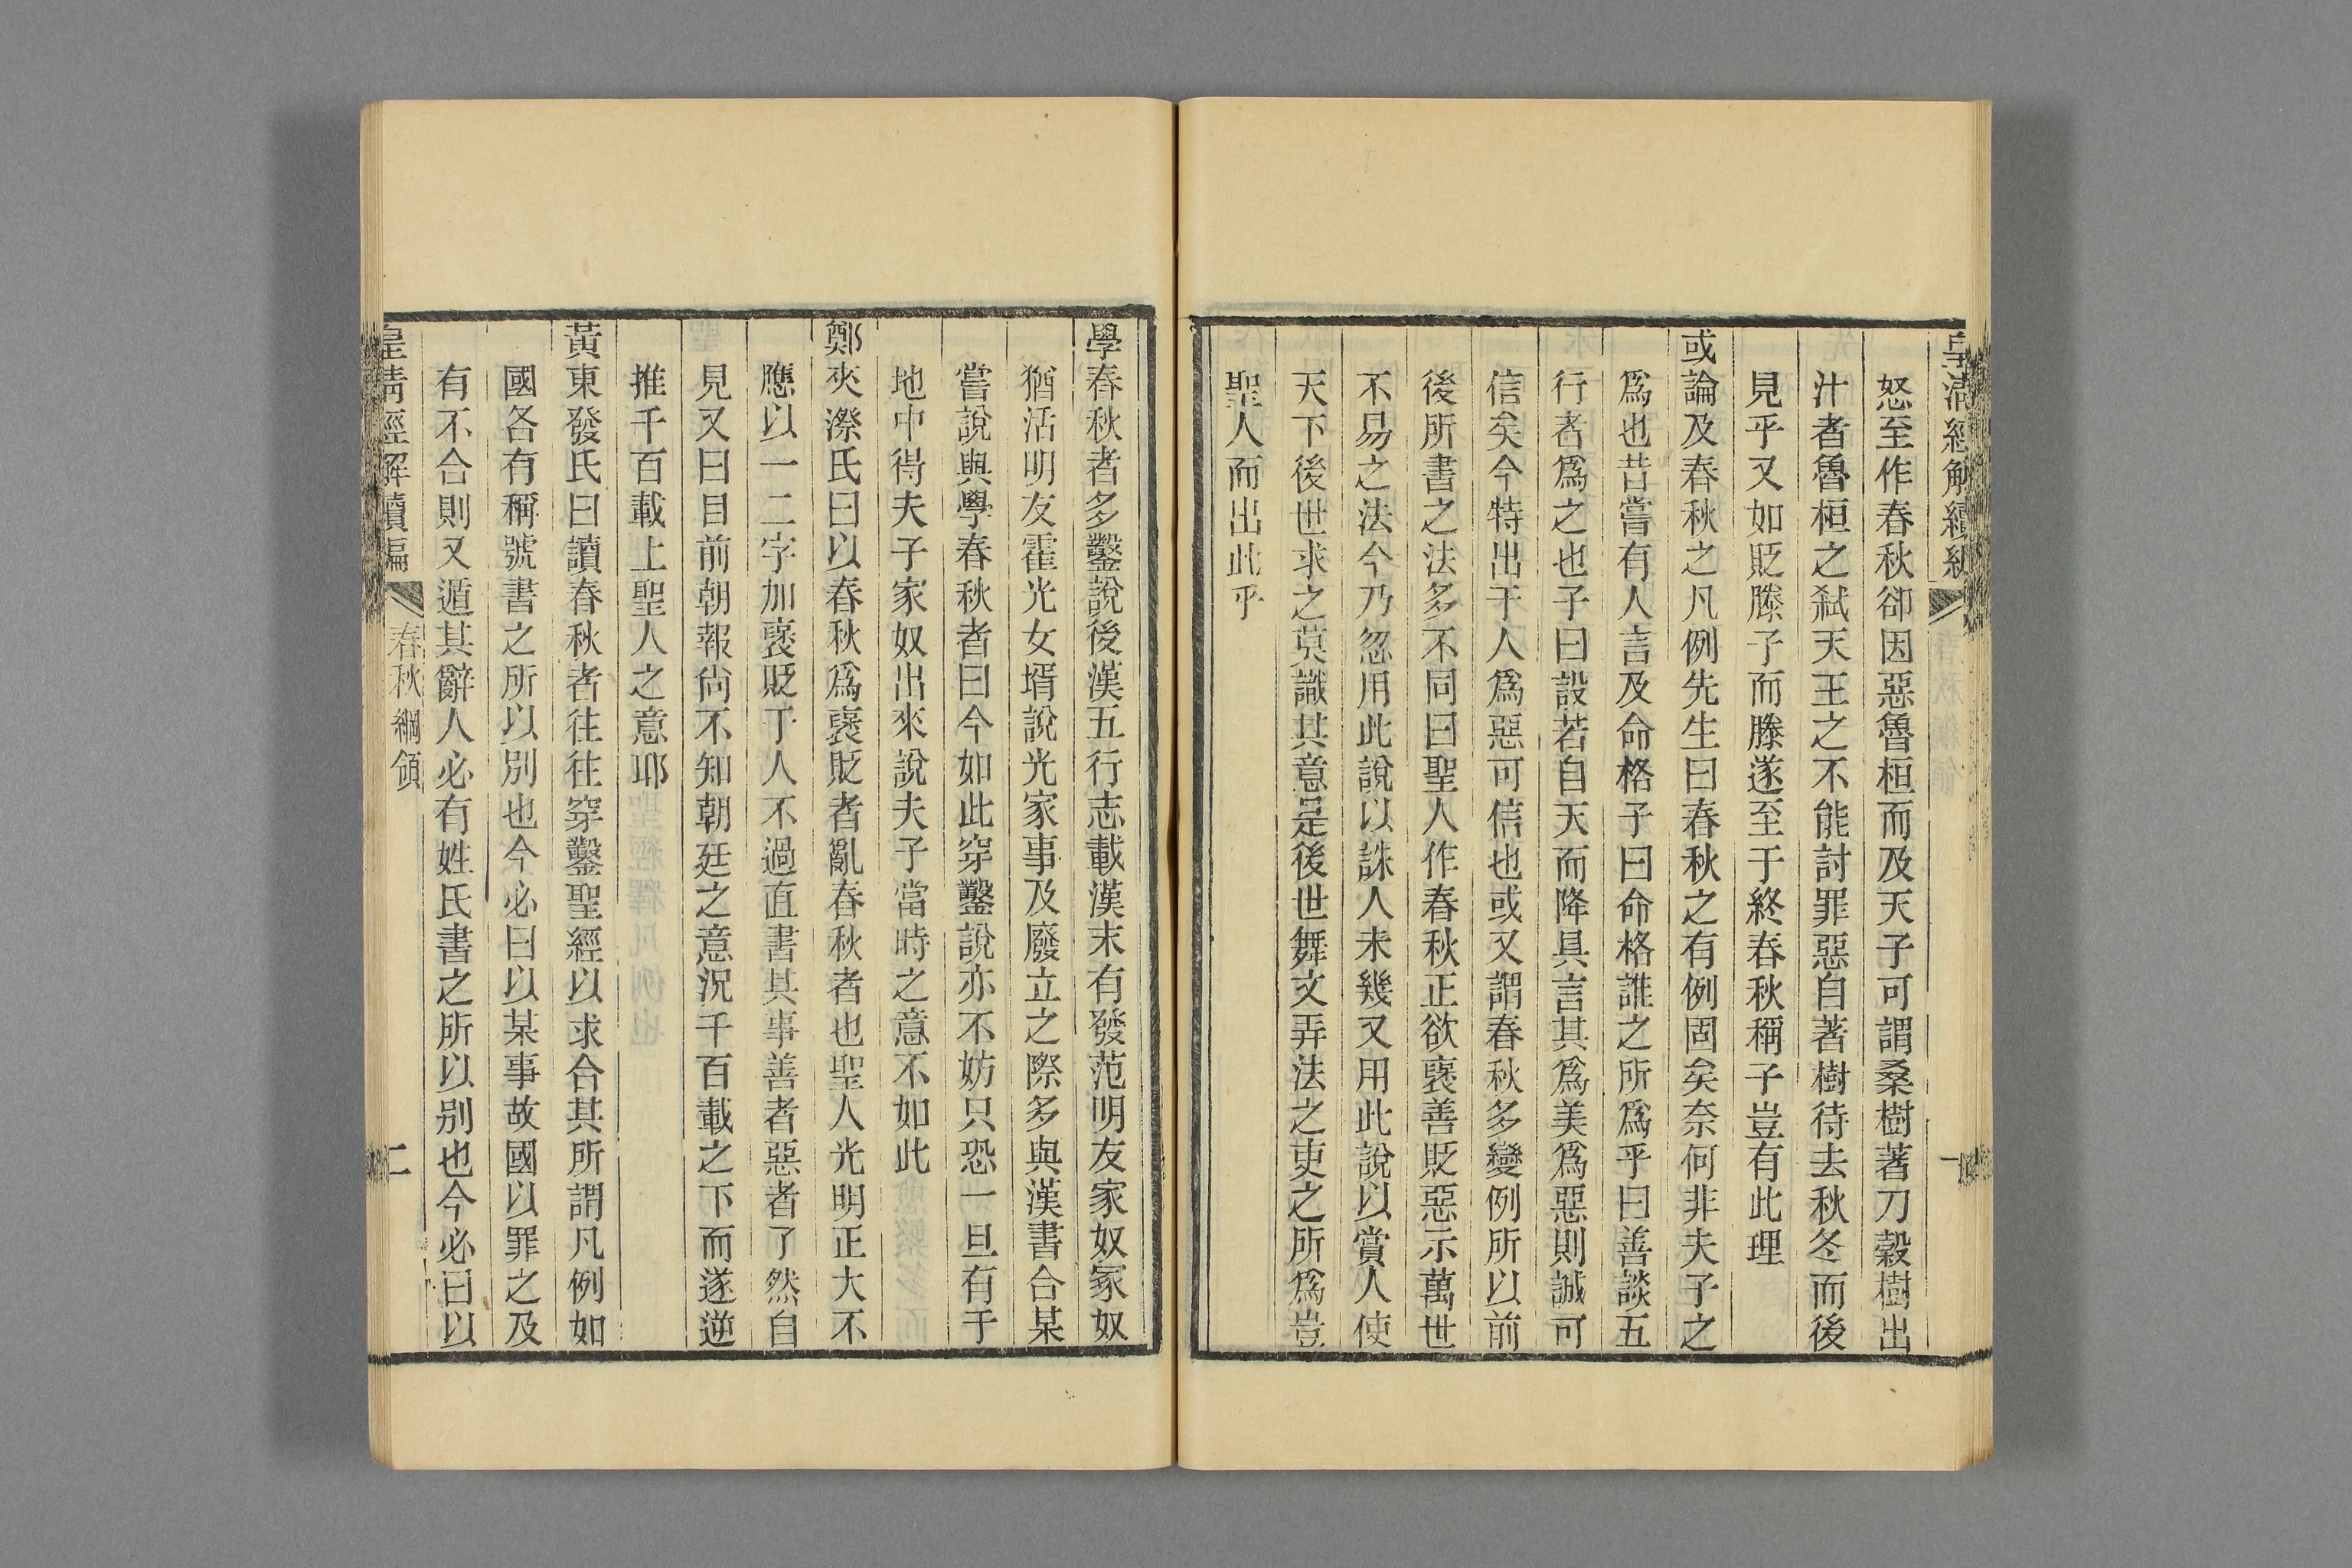 皇淸經解續編
怒至作春秋卻因惡魯桓而及天子可謂桑樹著刀榖樹出
汁者魯桓之弑天王之不能討罪惡自著樹待去秋冬而後
見乎又如貶滕子而滕遂至于終春秋稱子豈有此理
或論及春秋之凡例先生曰春秋之有例固矣奈何非夫子之
爲也昔嘗有人言及命格子曰命格誰之所爲乎曰善談五
行者爲之也子曰設若自天而降具言其爲美爲惡則誠可
信矣今特出于人爲惡可信也或又謂春秋多變例所以前
後所書之法多不同曰聖人作春秋正欲襃善貶惡示萬世
不易之法今乃忽用此說以誅人未幾又用此說以賞人使
天下後世求之莫識其意是後世舞文弄法之吏之所爲豈
聖人而出此乎
學春秋者多鑿說後漢五行志載漢末有發范明友家奴冢奴
猶活明友霍光女壻說光家事及廢立之際多與漢書合某
嘗說與學春秋者曰今如此穿鑿說亦不妨只恐一旦有于
地中得夫子家奴出來說夫子當時之意不如此
鄭夾漈氏曰以春秋爲襃貶者亂春秋者也聖人光明正大不
應以一二字加襃貶于人不過直書其事善者惡者了然自
見又曰目前朝報尙不知朝廷之意況千百載之下而遂逆
推千百載上聖人之意耶
黃東發氏曰讀春秋者往往穿鑿聖經以求合其所謂凡例如
國各有稱號書之所以別也今必曰以某事故國以罪之及
有不合則又遁其辭人必有姓氏書之所以別也今必曰以
皇淸經解續編
春秋綱領
二